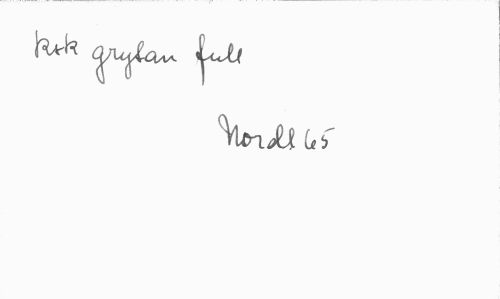 kok grytan full
Nordl 65